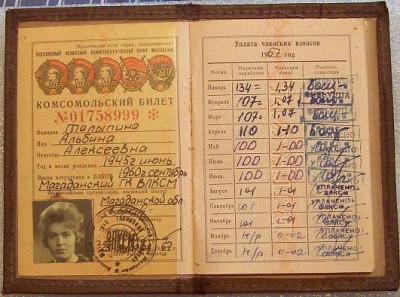 Пролетарии всех стран, соединяйтесь!
ВСЕСОЮЗНЫЙ ЛЕНИНСКИЙ КОММУНИСТИЧЕСКИЙ СОЮЗ МОЛОДЕЖИ
КОМСОМОЛЬСКИЙ БИЛЕТ
№01758999
Фамилия Талыпина
Имя Альбина
Отчество Алексеевна
Год и месяц рождения 1945г июнь
Время вступления в ВЛКСМ 1960г сентябрь
Магаданский ГК ВЛКСМ
Магаданской обл.
Уплата членских взносов
1967 год
Месяц Месячный заработок Членский взнос Подпись секретаря
Январь 134= 1,34
Февраль 107= 1,07
Март 107= 1,07
Апрель 110 1-10
Май 100 1-00
Июнь 100 1-00
Июль 100 1-00
Август 101 1-01 УПЛАЧЕНО ВЛКСМ
Сентябрь 101 1-01 УПЛАЧЕНО ВЛКСМ
Октябрь 101 1-01 УПЛАЧЕНО
Ноябрь н/р 0-02 УПЛАЧЕНО
Декабрь н/р 0-02 УПЛАЧЕНО